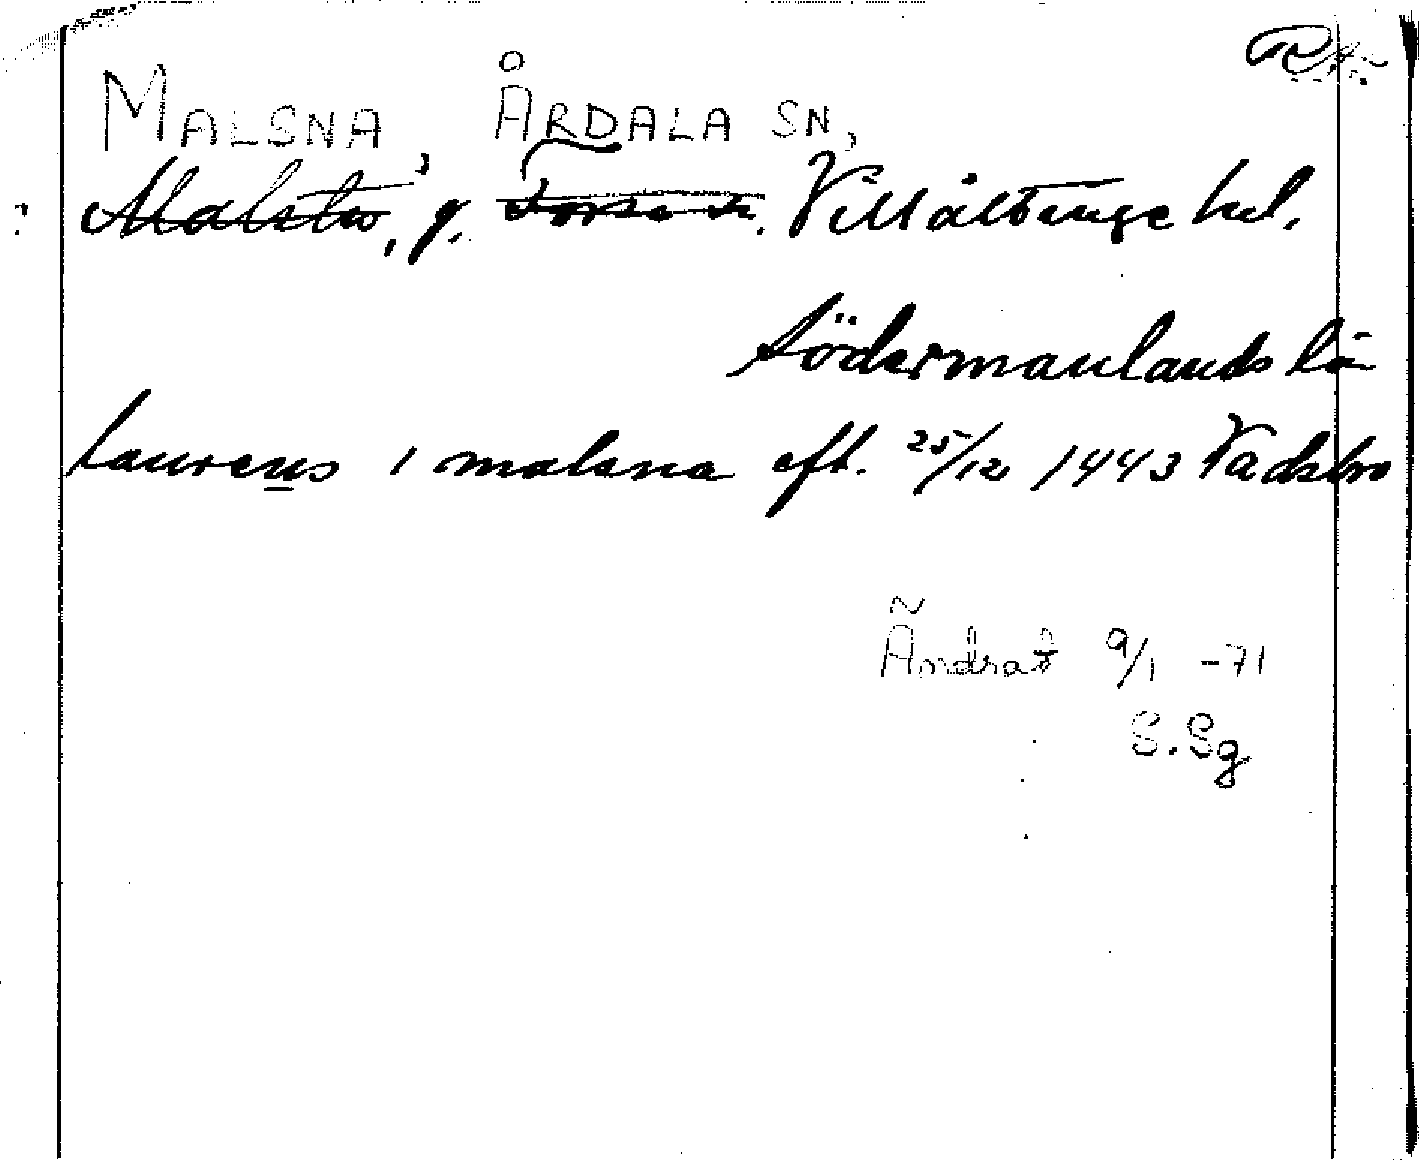 MALSNA, ÅRDALA SN,
? Malsta, g. Forssa sn. Villåttinge hd.
Södermanlands län
laurens i malsna eft. 25/12 1443 Vadsbro
Ändrat 9/1 -71
S.Sg